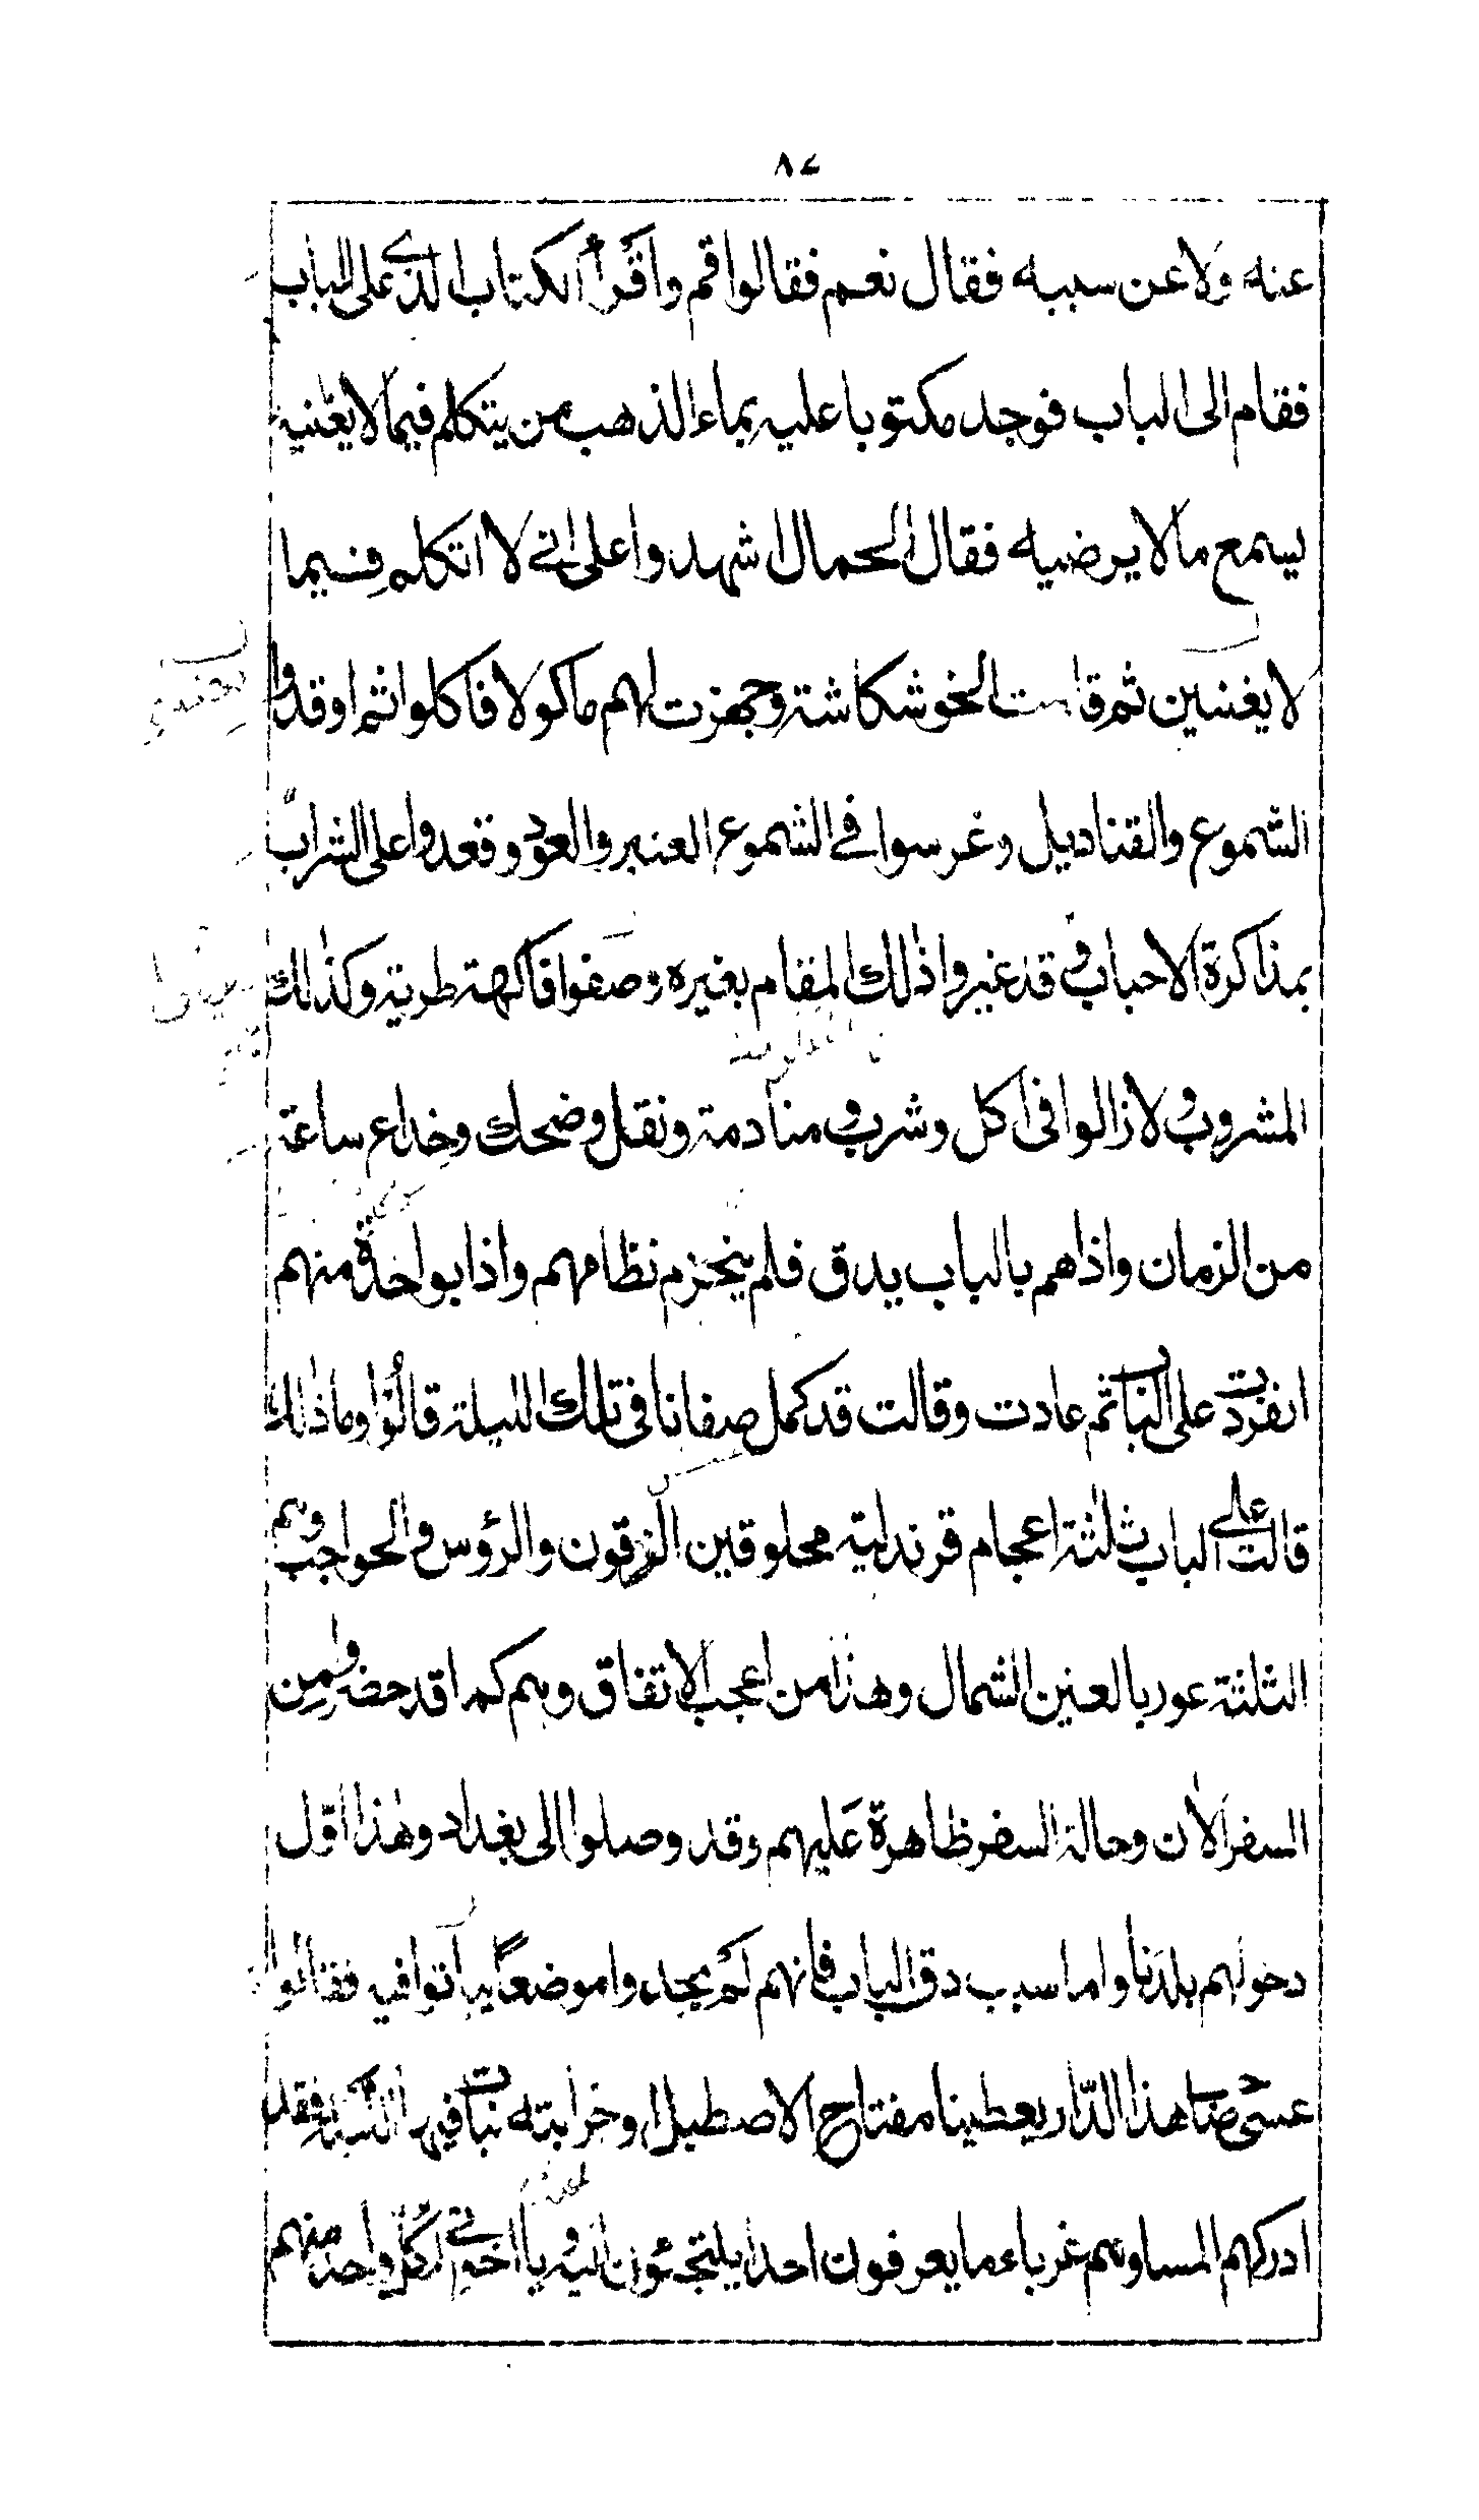 ٨٤
عنه ولا عن سببه فقال نعم فقالوا قم واقرأ الكتاب الذي على الباب
فقام الى الباب فوجد مكتوبا عليه بماء الذهب من يتكلم فيما لا يعنيه
يسمع ما لا يرضيه فقال الحمال اشهدوا على اني لا اتكلم فيما
لا يغنيين ثم قامت الخوشكاشة وجهزت لهم ماكولا فاكلوا ثم اوقدوا
الشموع والقناديل وغرسوا في الشموع العنبر والعود وقعدوا على الشراب
بمذاكرة الاحباب و قد غيروا ذلك المقام بغيره وصفوا فاكهة طرية وكذلك
المشروب و لا زالوا في اكل وشرب و منادمة ونقل وضحك وخداع ساعة
من الزمان واذا هم بالباب يدق فلم ينخزم نظامهم واذا بواحدة منهم
انفردت على الباب ثم عادت وقالت قد كمل صفانا في تلك الليلة قالوا وما ذلك
قالت على الباب ثلثة اعجام قرندلية محلوقين الزقون والرؤس والحواجب وهم
الثلثة عور بالعين الشمال وهذا من اعجب الاتفاق وهم كما قد حضروا من
السفر الان وحالة السفر ظاهرة عليهم وقد وصلوا الى بغداد وهذا اول
دخولهم بلدنا واما سبب دق الباب فانهم لم يجدوا موضعا يباتوا فيه فقالوا
عسى صاحب هذا الدار يعطينا مفتاح الاصطبل او خرابته نبات فيها الليلة فقد
ادركهم المسا وهم غرباء ما يعرفون احدا يلتجئون اليه و يا اخوتي لكل واحد منهم